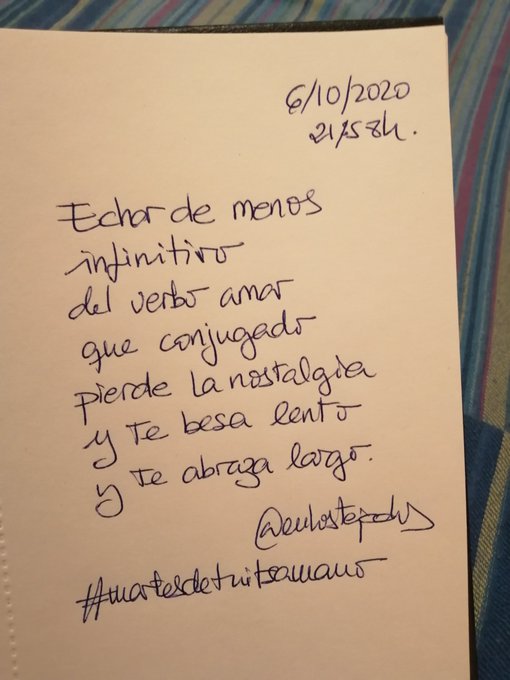 6/10/2020
21:58h.
Echar de menos
infinitivo
del verbo amar
que conjugado
pierde la nostalgia
y te besa lento
y te abraza largo.
#martesdetuitsamano